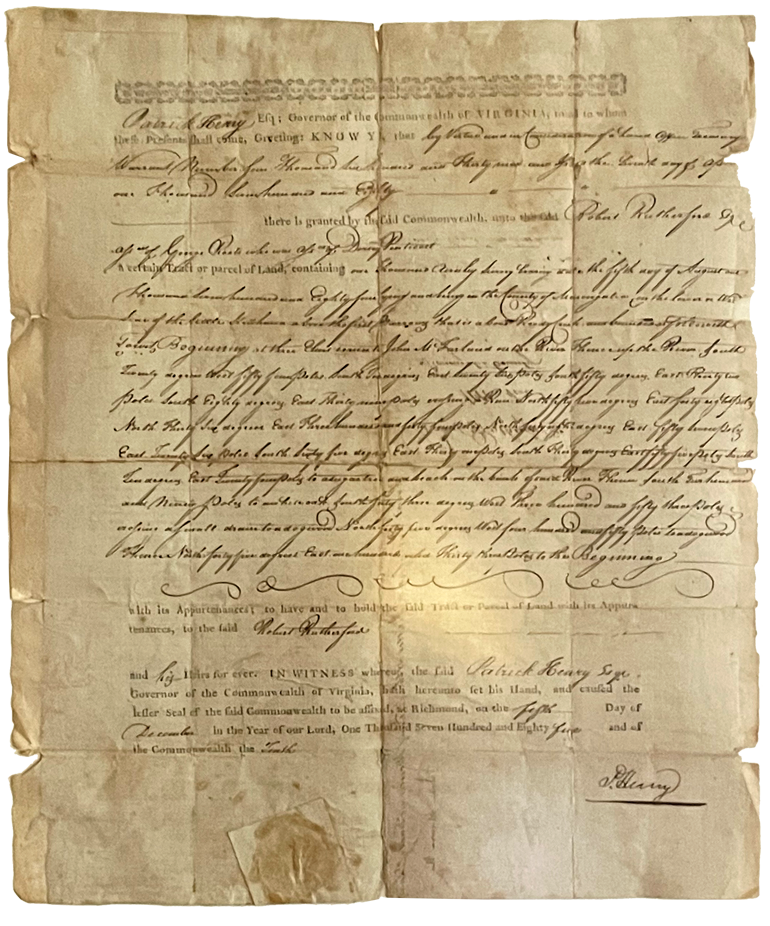 Patrick Henry Esq; Governor of the Commonwealth of VIRGINIA; to all to whom
these Presents shall come, Greeting: KNOW YE, that by Virtue and in Consideration of a Land Office Treasury
Warrant Number four Thousand hundred and Thirty and the day of
one Thousand Seven hundred and Eighty
there is granted by the said Commonwealth, unto the said Robert Rutherford Esqr
assee of George Roots who was assee of Pentecost
A certain Tract or parcel of Land, containing one thousand Acres by Survey bearing date the fifth day of August one
Thousand Seven hundred and Eighty four lying and being in the County of Monongalia on the
side of the little Kenhawa above the first
Beginning at three Elms corner to John McFarland on the River Thence up the River, South
Twenty degrees West fifty four Poles South Ten degrees East Twenty Six Poles South fifty degrees East
Poles South Eighty degrees East Thirty nine Poles crossing a Run North fifty degrees East forty eight Poles
North Thirty Six degrees East Three hundred and fifty four Poles North degrees East fifty Poles
East Twenty Six Poles South Sixty five degrees East Thirty Poles South Thirty degrees East fifty five Poles South
Ten degrees East Twenty four Poles to a and beech on the bank of said River Thence South
and Ninety Poles to a South forty three degrees West Three hundred and fifty three Poles
crossing a small drain to a dogwood North fifty five degrees West four hundred and fifty Poles to a dogwood
Thence North forty five degrees East one hundred and Thirty three Poles to the Beginning
with its Appurtenances; to have and to hold the said Tract or Parcel of Land with its Appur-
tenances, to the said Robert Rutherford
and his Heirs for ever. IN WITNESS whereof, the said Patrick Henry Esqr.
Governor of the Commonwealth of Virginia, hath hereunto set his Hand, and caused the
lesser Seal of the said Commonwealth to be affixed, at Richmond, on the fifth Day of
December in the Year of our Lord, One Thousand Seven Hundred and Eighty five and of
the Commonwealth the Tenth
P. Henry